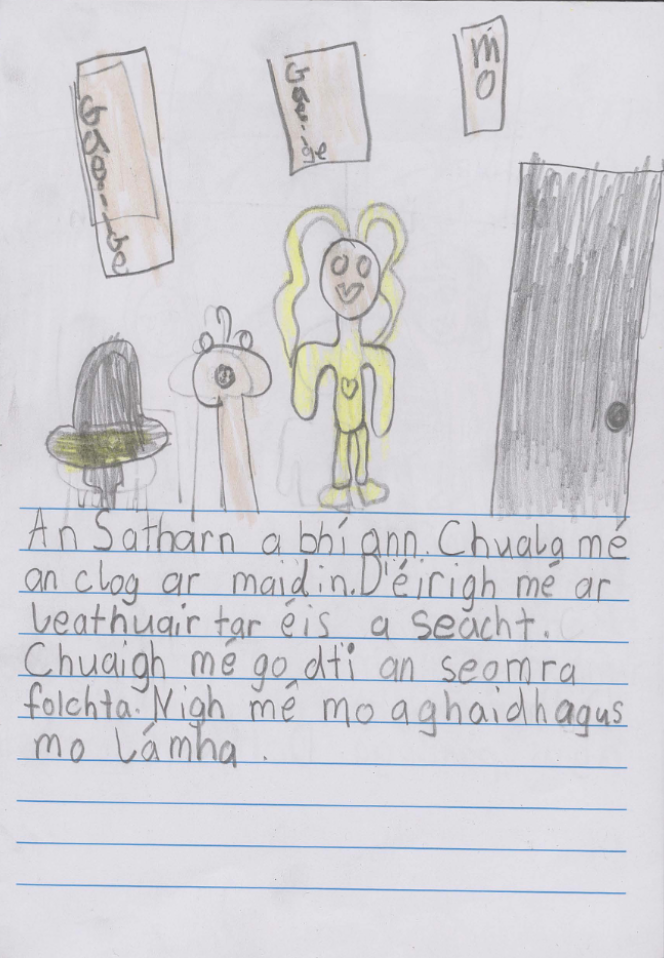 mo
An Satharn a bhí ann. Chuala mé
an clog ar maidin. D'éirigh mé ar
leathuair tar éis a seacht.
Chuaigh mé go dtí an seomra
folchta. Nigh mé mo aghaidh agus
mo lámha.